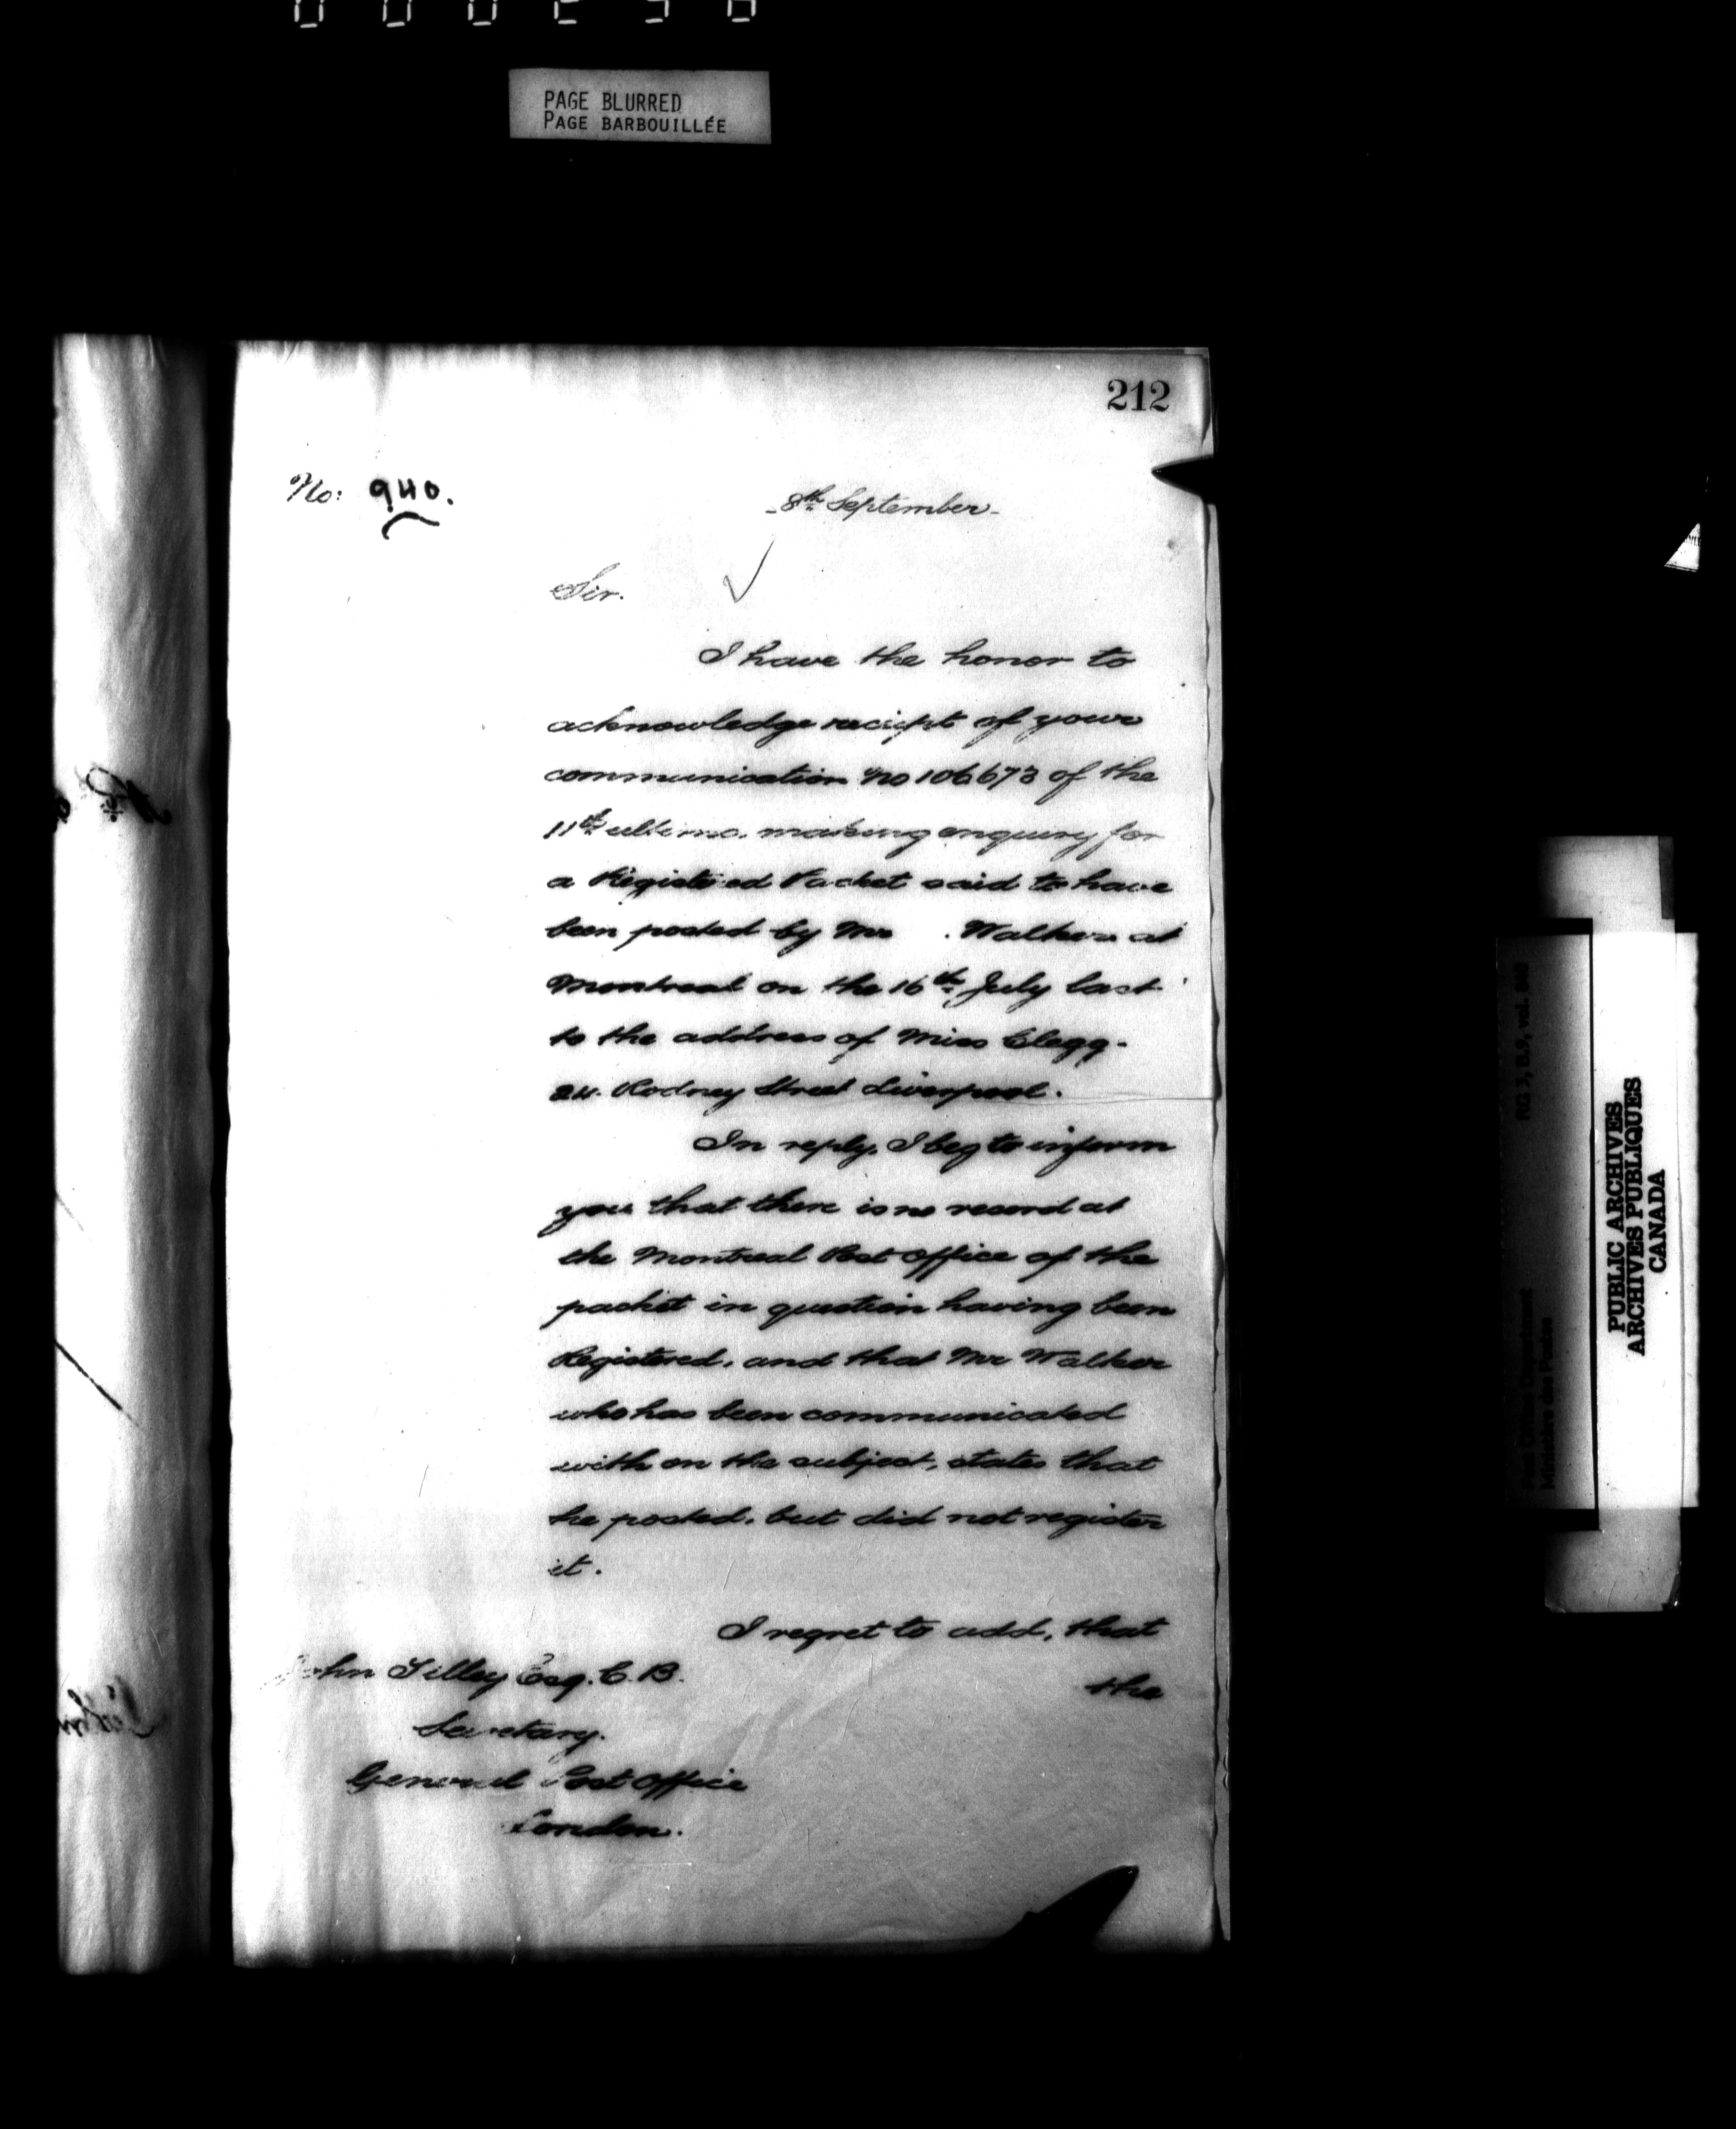 PAGE BLURRED
PAGE BARBOUILLÉE
212
No: 940.
8th September
Sir.
I have the honor to
acknowledge reciept of your
communication No 106673 of the
11th ultimo. making enquiry for
a Registered Packet said to have
been posted by Mr . Walker at
Montreal on the 16th July last
to the address of Miss Clegg.
24. Rodney Street Liverpool.
In reply, I beg to inform
you that there is no record at
the Montreal Post Office of the
packet in question having been
Registered, and that Mr Walker
who has been communicated
with on the subject, states that
he posted, but did not register
it.
I regret to add, that
the
John Tilley Esq. C. B.
Secretary.
General Post Office
London.
RG 3, B.9, vol.
Post Office Department
Ministère des Postes
PUBLIC ARCHIVES
ARCHIVES PUBLIQUES
CANADA